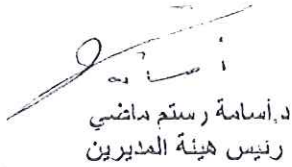 أسامه
د.أسامة رستم ماضي
رئيس هيئة المديرين